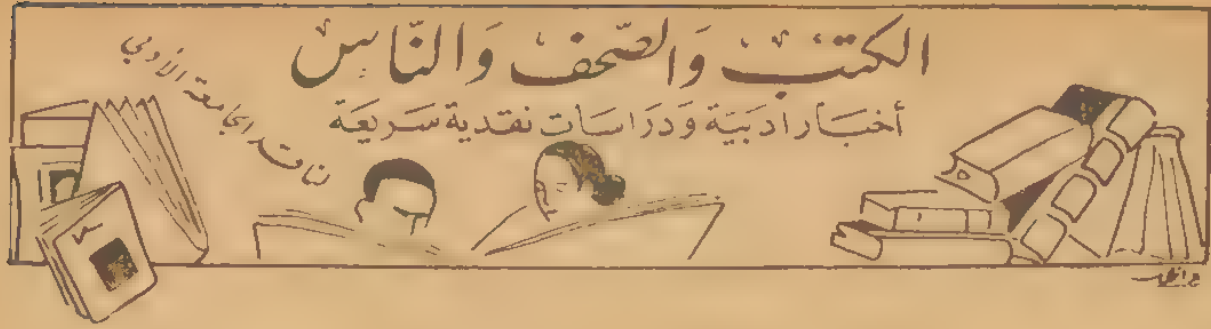 الكتب وَالصّحف وَالنّاس
أخبار ادبيّة وَدراسات نقدية سَريعَة
لناقد الجامعة الأدبي